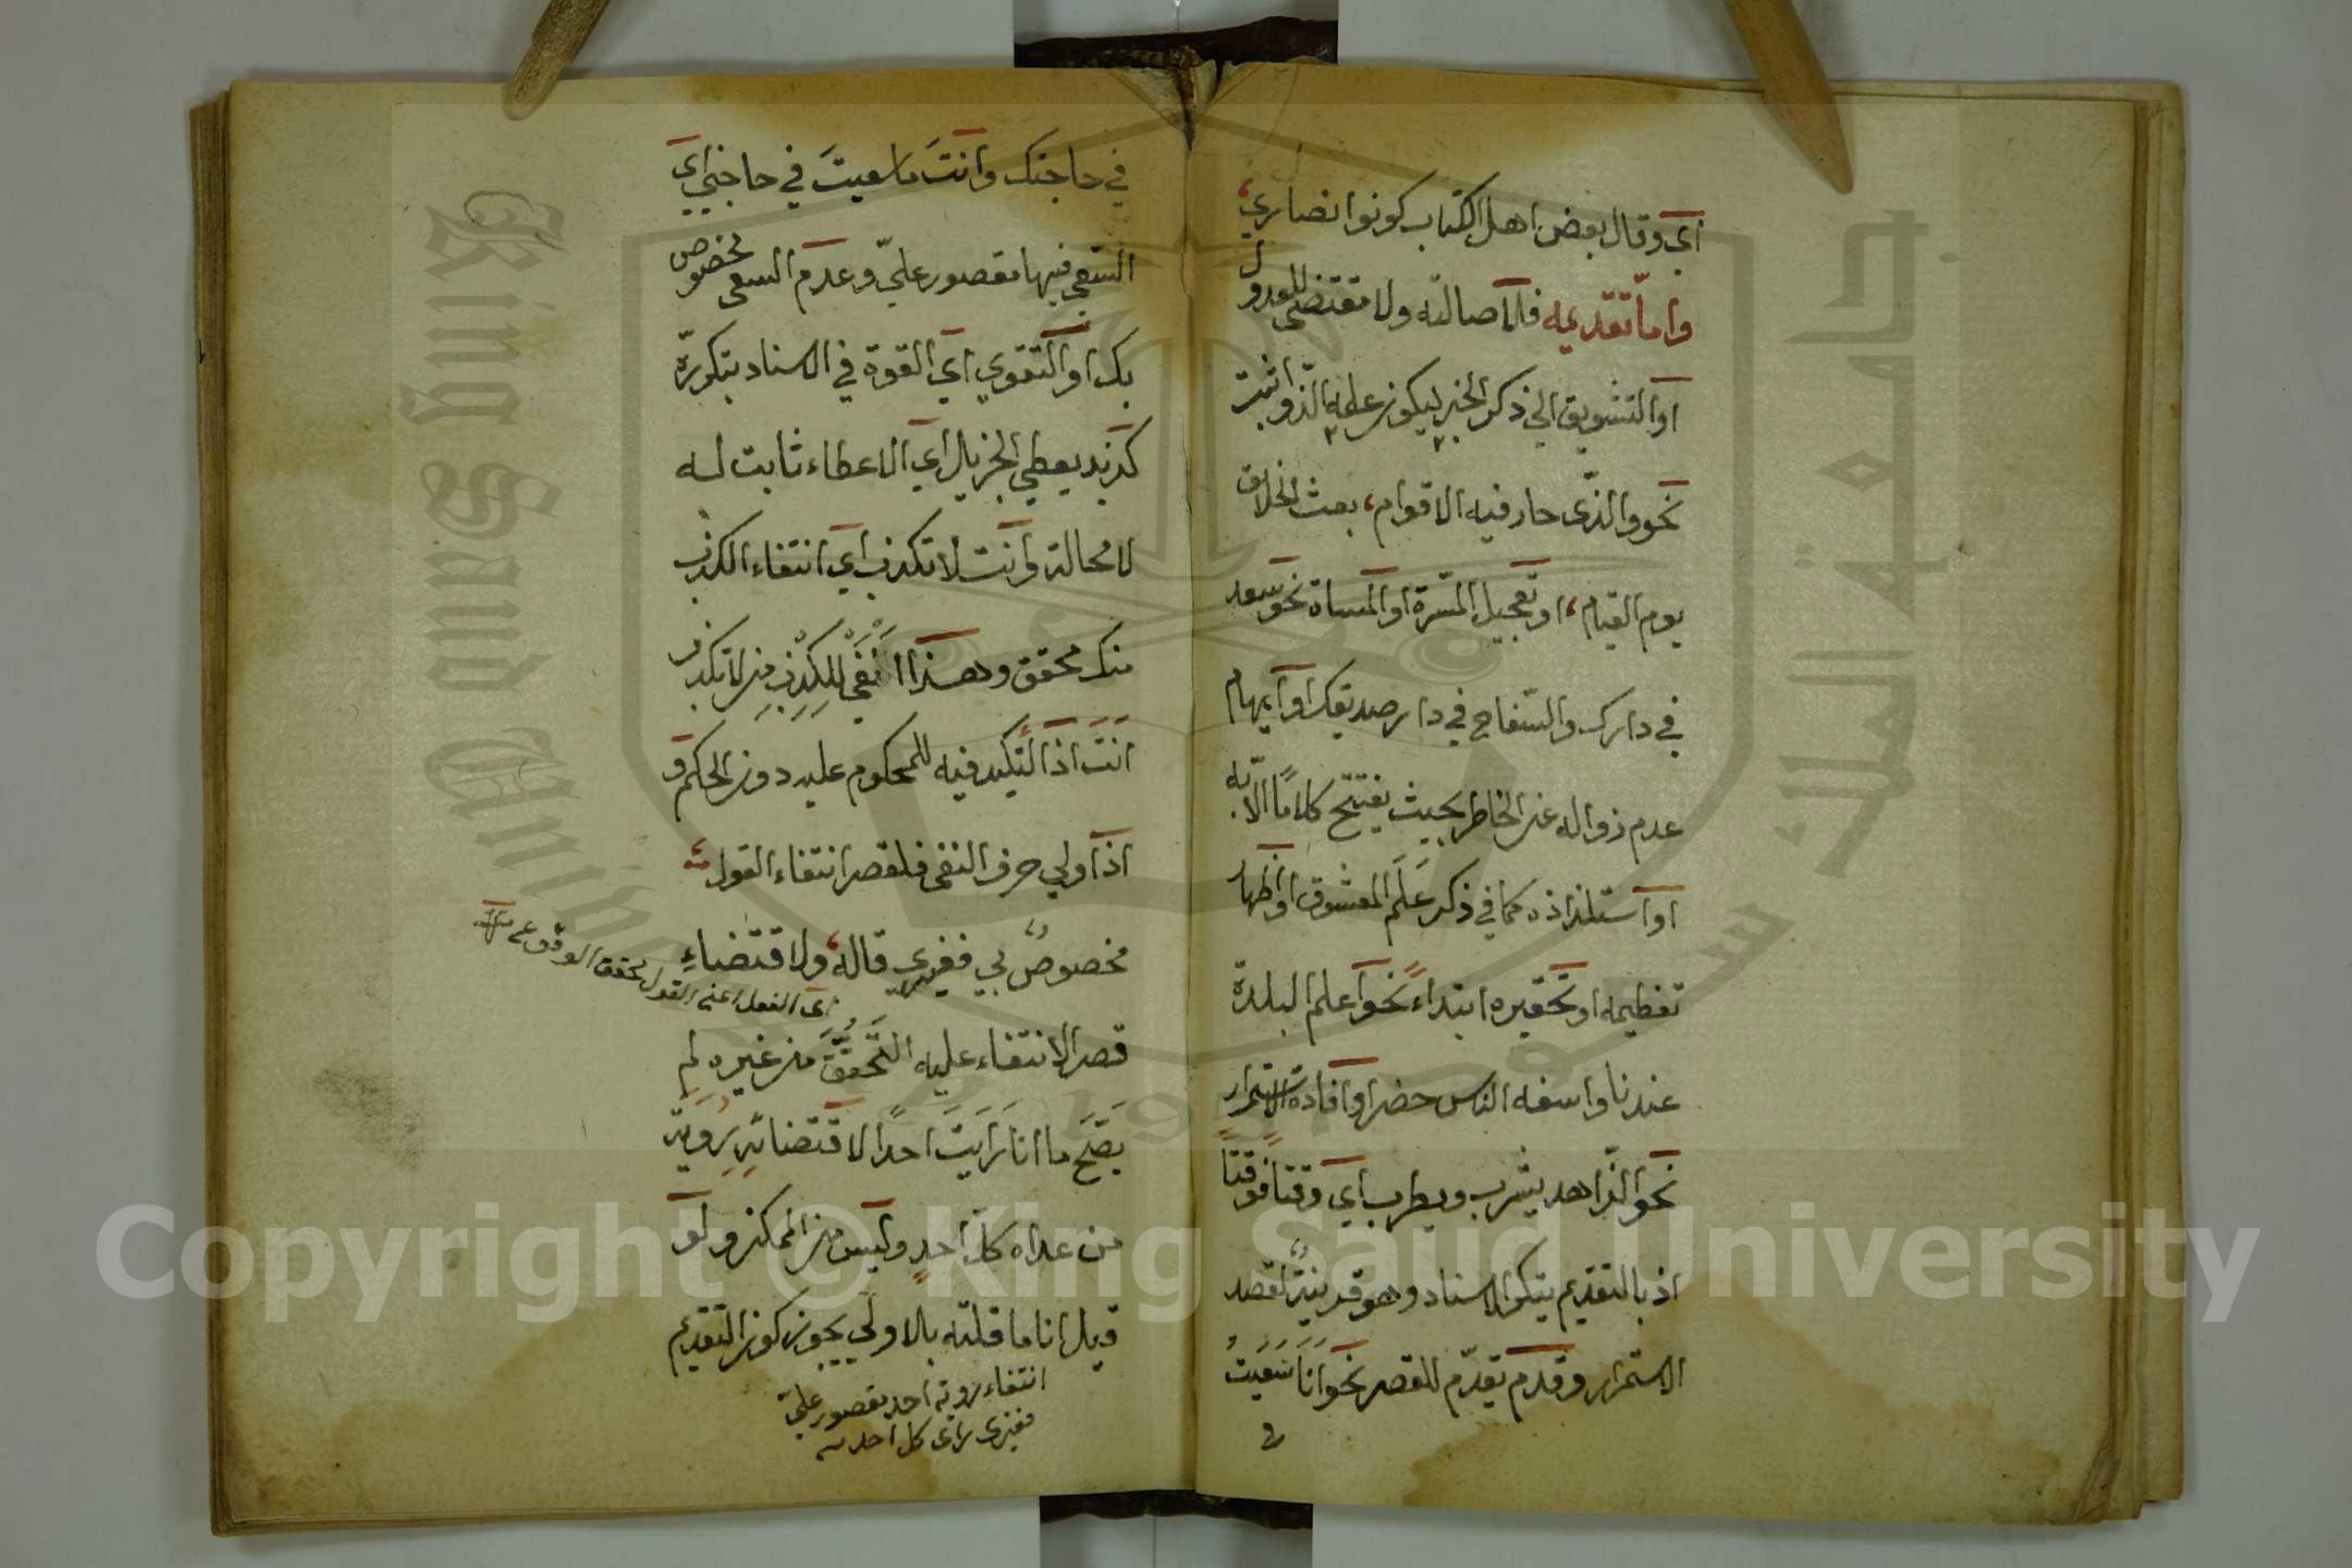 اي وقال بعض اهل الكتاب كونوا نصاري،
واما تقديمه فلاصالته ولا مقتضي للعدول
او التشويق الي ذكر الخبر ليكون علمه الذ واثبت
نحو والذي حار فيه الاقوام، بعث الخلائق
يوم القيام، او تعجيل المسرة او المساة نحو سعد
في دارك والسفاح في دار صديقك او ايهام
عدم زواله عن الخاطر بحيث يفتتح كلاما الا به
او استلذاذه كما في ذكر علم المعشوق او اظهار
تعظيمه او تحقيره ابتداء نحو اعلم البلدة
عندنا واسفه الناس حضر او افادة الاستمرار
نحو الزاهد يشرب ويطرب اي وقتا فوقتا
اذ بالتقديم يتكرر الاسناد وهو قرينة لقصد
الاستمرار وقد م يقدم للقصر نحو انا سعيت
في
في حاجتك وانت ما سعيت في حاجتي اي
السعي فيها مقصور علي وعدم السعي مخصوص
بك او التقوي اي القوة في الاسناد بتكرره
كزيد يعطي الجزيل اي الاعطاء ثابت له
لا محالة وانت لا تكذب اي انتفاء الكذب
منك محقق وهذا انفي للكذب من لا تكذب
انت اذ التكيد فيه للمحكوم عليه دون الحكم و
اذا ولي حرف النفي فلقصر انتفاء القول
مخصوص بي فغيري قاله، ولا قتضاء
اي الفعل اعني القول تحقق الوقوع
قصر الانتفاء عليه التحقق من غيره لم
يصح ما انا رايت احدا لاقتضائه رؤية
من عداه كل احد وليس من الممكن ولو
قيل انا ما قلته بالاولي يجوز كون التقديم
انتفاء روية احد مقصور علي
فغيري راي كل احد
Copyright © King Saud University
King Saud University
جامعة الملك سعود